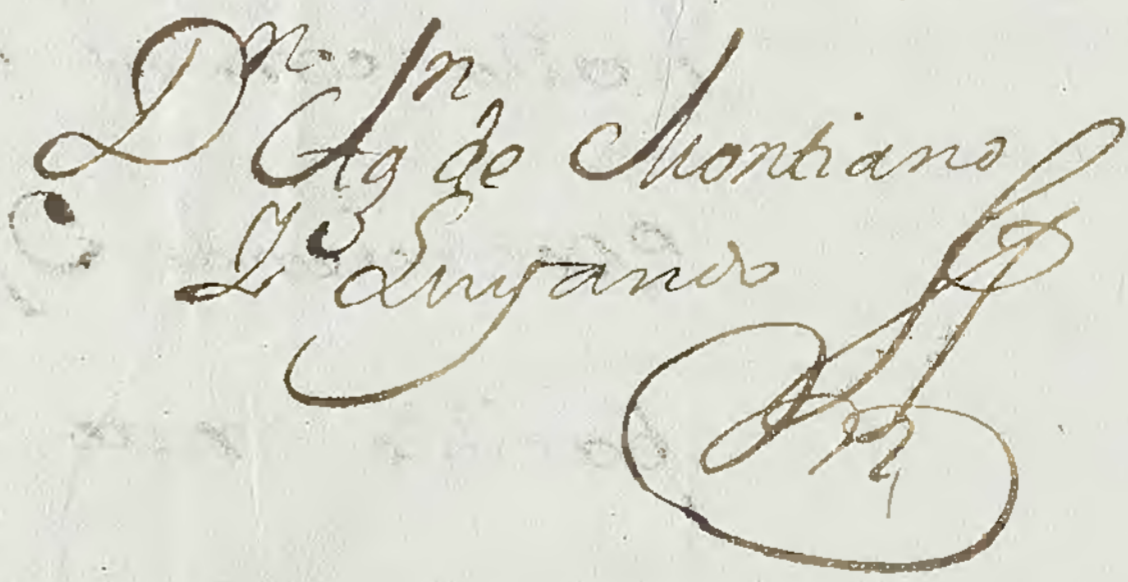 Dn. Agn de Montiano
Y Luyando